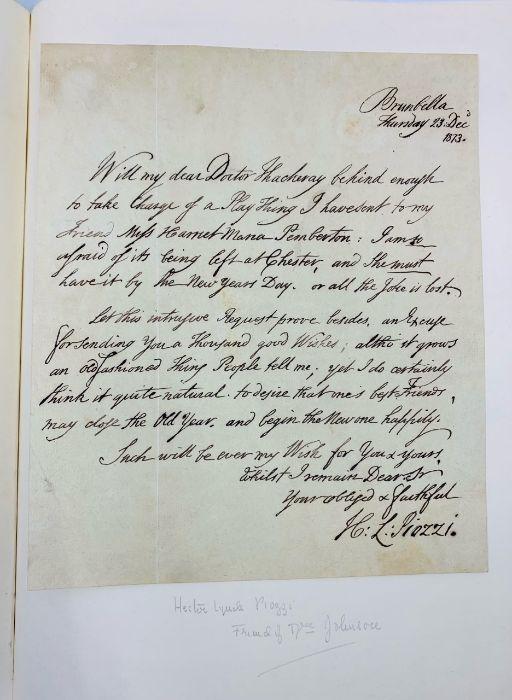 Brunbella
Thursday 23: Dec.r
1873.
Will my dear Doctor Thackeray be kind enough
to take Charge of a Play Thing I have sent to my
Friend Miss Harriet Maria Pemberton: I am so
afraid of its being left at Chester, and She must
have it by the New Years Day. or all the Joke is lost.
Let this intrusive Request prove besides, an Excuse
for sending You a thousand good Wishes; altho' it grows
an old fashioned Thing People tell me; yet I do certainly
think it quite natural to desire that one's best Friends,
may close the Old Year, and begin the New one happily.
Such will be ever my Wish for You & yours,
Whilst I remain Dear Sir
Your obliged & faithful
H: L: Piozzi.
Hester Lynch Piozzi
Friend of Dr Johnson